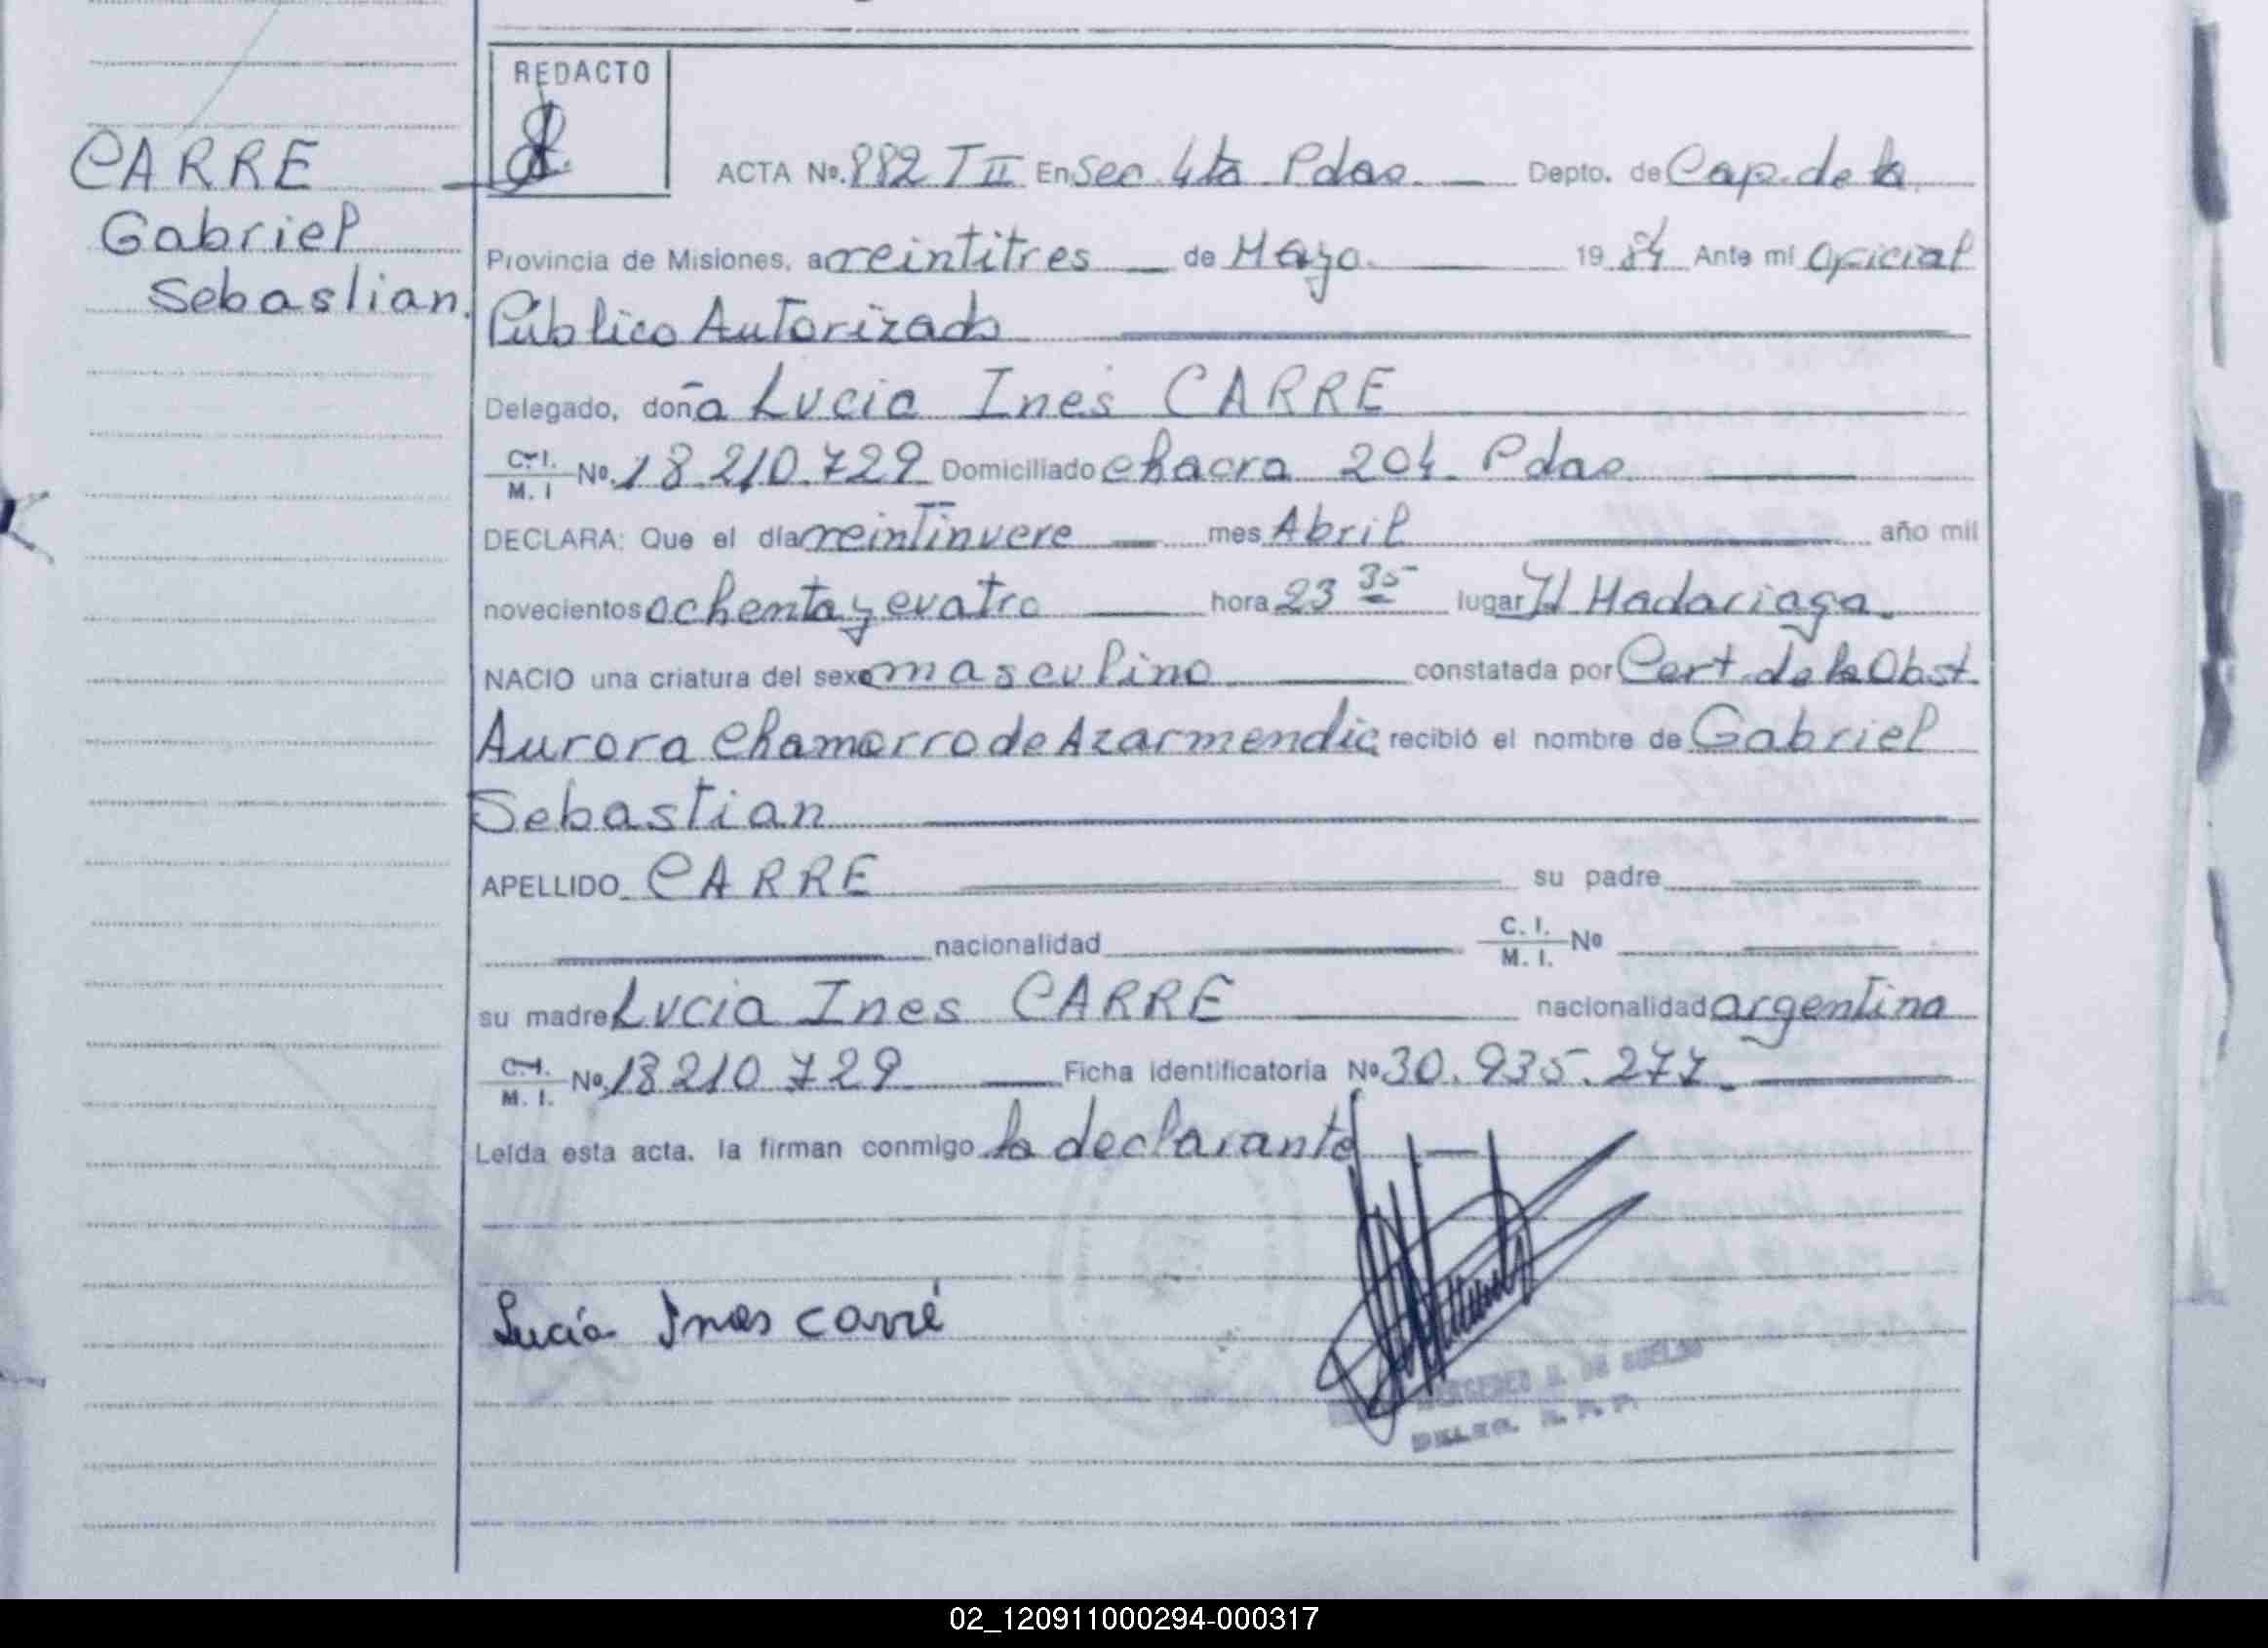 REDACTO
CARRE
Gabriel
Sebastian.
ACTA No. 882 T II En Sec. 4ta Pdas. Depto. de Cap. de la
Provincia de Misiones, a veintitres de Mayo. 19 84 Ante mi Oficial
Público Autorizado
Delegado, doña Lucia Ines CARRE
C.I. M. I No. 18.210.729 Domiciliado chacra 204. Pdas
DECLARA: Que el día veintinueve mes Abril año mil
novecientos ochenta y cuatro hora 23 35 lugar H Madariaga.
NACIO una criatura del sexo masculino constatada por Cert. de la Obst.
Aurora Chamorro de Azarmendia recibió el nombre de Gabriel
Sebastian
APELLIDO CARRE su padre
nacionalidad C. I. M. I. No
su madre Lucia Ines CARRE nacionalidad argentina
C.I. M. I. No. 18210729 Ficha identificatoria No 30.935.277.
Leída esta acta, la firman conmigo la declarante
Lucía Ines carré
DE SUELDO
02_120911000294-000317